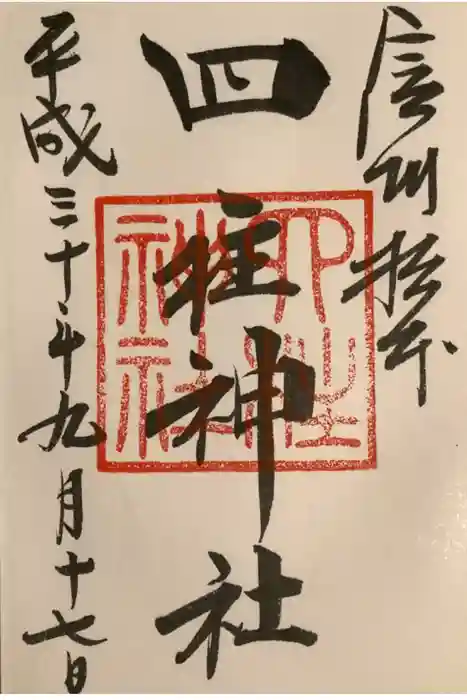 信州松本
四柱神社
四柱
神社
平成三十年九月十七日